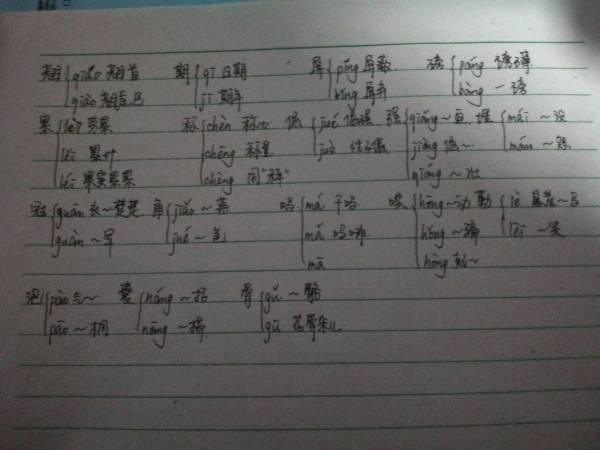 翘 qiáo 翘首 期 qī 日期 屏 píng 屏蔽 磅 páng 磅礴
qiào 翘尾巴 jī 期年 bǐng 屏弃 bàng 一磅
累 lèi 劳累 称 chèn 称心 倔 jué 倔强 强 qiǎng ~ 埋 mái ~没
lěi 累计 chēng 称量 juè 性子倔 jiàng 倔~ mán ~怨
léi 果实累累 chèng 同"秤" qiáng ~壮
冠 guān 衣~楚楚 角 jiǎo ~落 吗 má 干吗 哄 hōng ~动 勒 lè 悬崖~马
guàn ~军 jué ~色 mǎ 吗啡 hǒng ~骗 lēi ~紧
ma hòng 起~
泡 pào 气~ 囊 náng ~括 骨 gǔ ~骼
pāo ~桐 nāng ~揣 gū 花骨朵儿